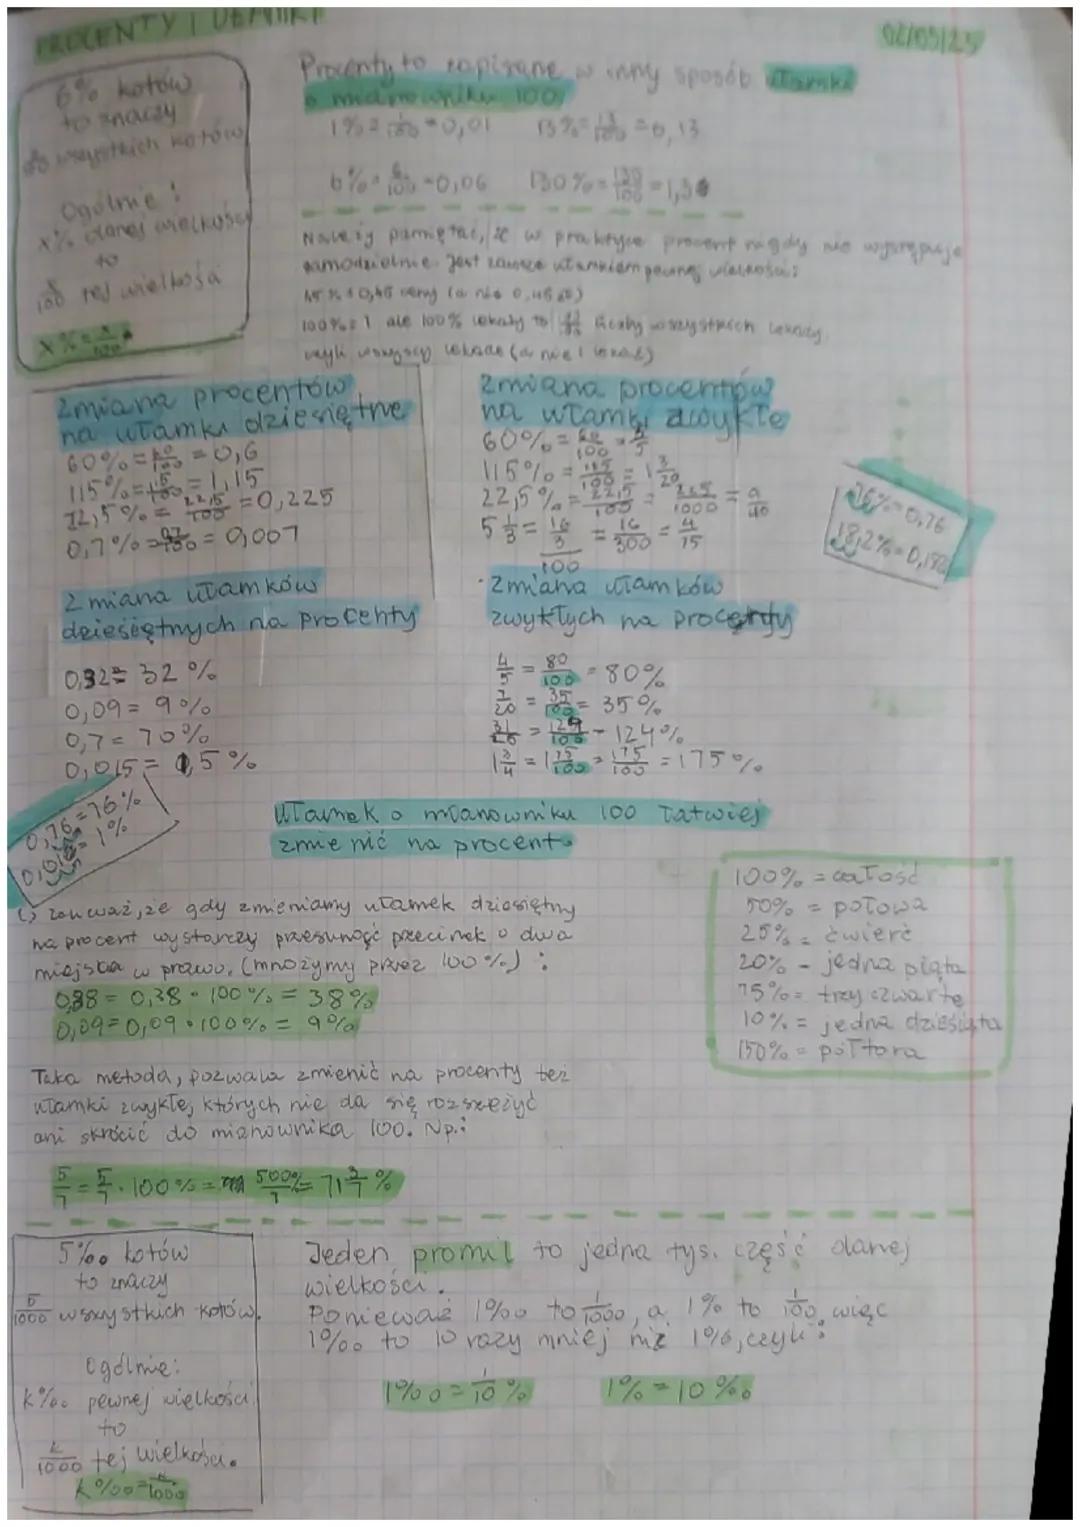 PROCENTY I UŁAMKI
02/09/25
6% kotów
to znaczy
6/100 wszystkich kotów
Ogólnie:
x% danej wielkości
to
x/100 tej wielkości
x%=x/100
Procenty to zapisane w inny sposób ułamki
o mianowniku 100
1%=1/100=0,01 13%=13/100=0,13
6%=6/100=0,06 130%=130/100=1,3
Należy pamiętać, że w praktyce procent nigdy nie występuje
samodzielnie. Jest zawsze ułamkiem pewnej wielkości:
45% to 0,45 ceny (a nie 0,45 zł)
100%=1 ale 100% lekarzy to liczby wszystkich lekarzy,
czyli wszyscy lekarze (a nie 1 lekarz)
zmiana procentów
na ułamki dziesiętne
60%=60/100=0,6
115%=115/100=1,15
22,5%=22,5/100=0,225
0,7%=0,7/100=0,007
zmiana procentów
na ułamki zwykłe
60%=60/100=3/5
115%=115/100=1 3/20
22,5%=22,5/100=225/1000=9/40
5 1/3=16/3/100=16/300=4/75
76%=0,76
18,2%=0,182
zmiana ułamków
dziesiętnych na procenty
0,32=32%
0,09=9%
0,7=70%
0,015=1,5%
0,76=76%
0,01=1%
zmiana ułamków
zwykłych na procenty
4/5=80/100=80%
7/20=35/100=35%
31/25=124/100=124%
1 3/4=1 75/100=175/100=175%
Ułamek o mianowniku 100 łatwiej
zmienić na procent.
↳ zauważ, że gdy zmieniamy ułamek dziesiętny
na procent wystarczy przesunąć przecinek o dwa
miejsca w prawo. (mnożymy przez 100%):
0,38=0,38·100%=38%
0,09=0,09·100%=9%
100%=całość
50%=połowa
25%=ćwierć
20%-jedna piąta
75%=trzy czwarte
10%=jedna dziesiąta
150%=półtora
Taka metoda, pozwala zmienić na procenty też
ułamki zwykłe, których nie da się rozszerzyć
ani skrócić do mianownika 100. Np.:
5/7=5/7·100%=500%/7=71 3/7%
5‰ kotów
to znaczy
5/1000 wszystkich kotów.
Ogólnie:
k‰ pewnej wielkości
to
k/1000 tej wielkości.
k‰=k/1000
Jeden promil to jedna tys. część danej
wielkości.
Ponieważ 1‰ to 1/1000, a 1% to 1/100, więc
1‰ to 10 razy mniej niż 1%, czyli:
1‰=1/10% 1%=10‰